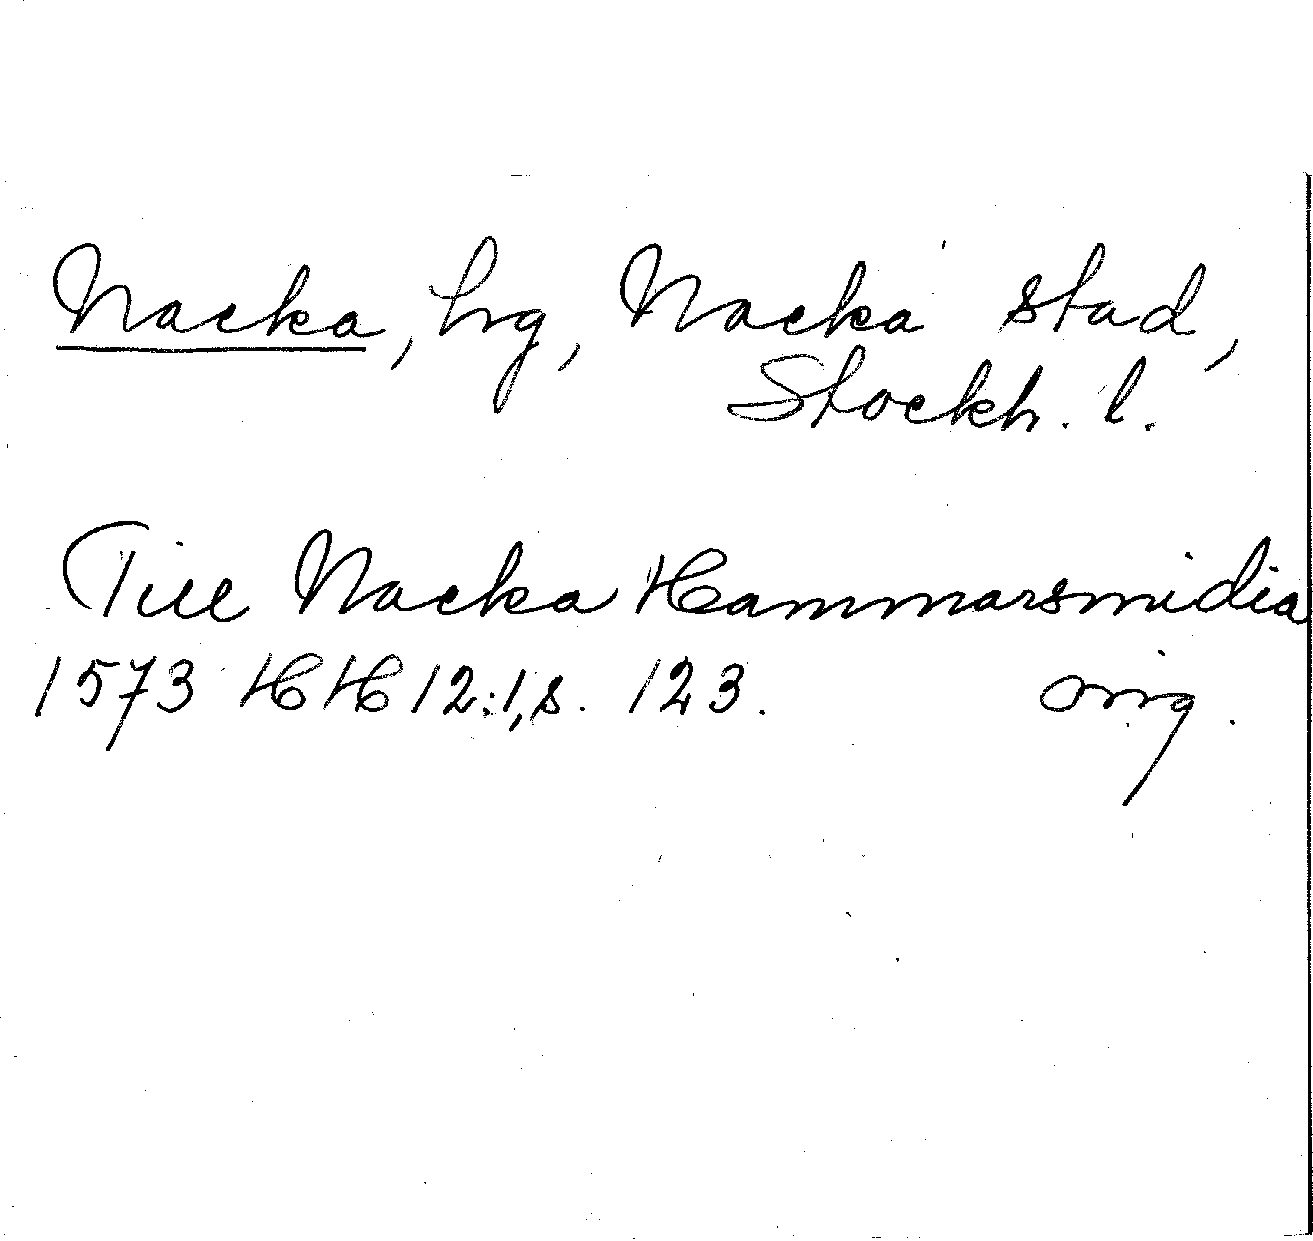 Nacka, hg, Nacka stad,
Stockh. l.
Till Nacka Hammarsmidia
1573 HH 12:1, s. 123. orig.